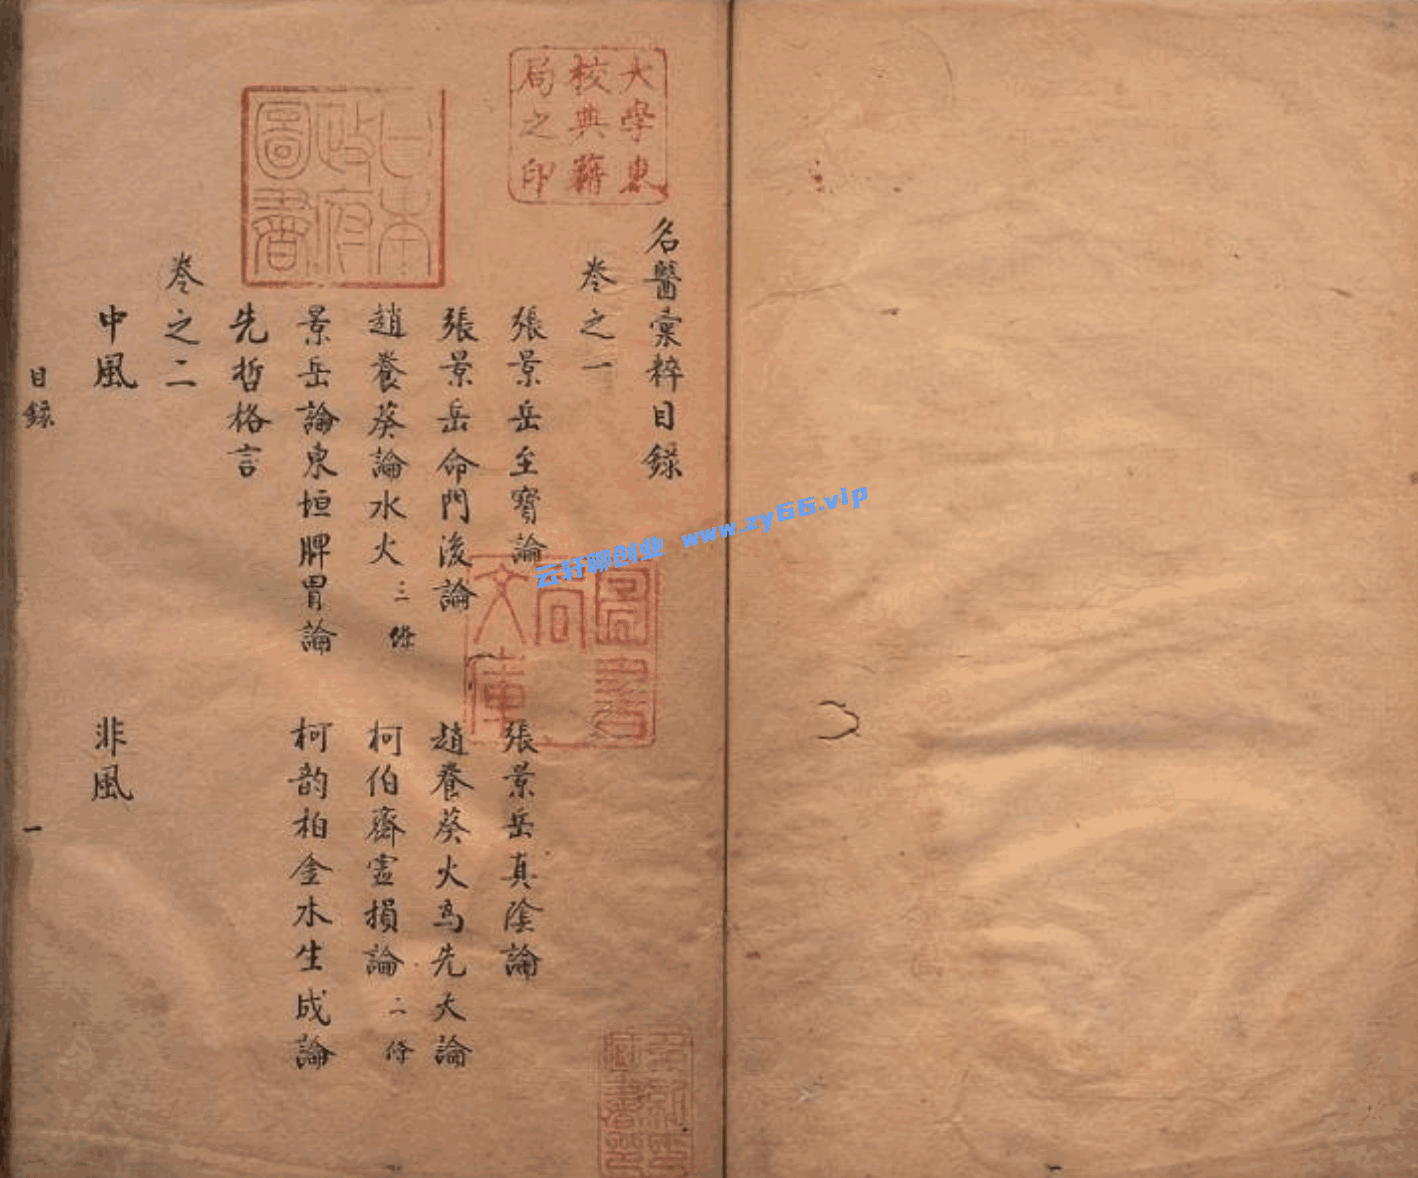 名醫彙粹目錄
卷之一
張景岳至寶論
張景岳真陰論
張景岳命門後論
趙養葵火為先天論
趙養葵論水火 三條
柯伯齋虛損論 二條
景岳論東垣脾胃論
柯韵柏金水生成論
先哲格言
卷之二
中風
非風
目錄
一
大學東
校典籍
局之印
日本
政府
圖書
文庫
云轩联创业 www.xy66.vip